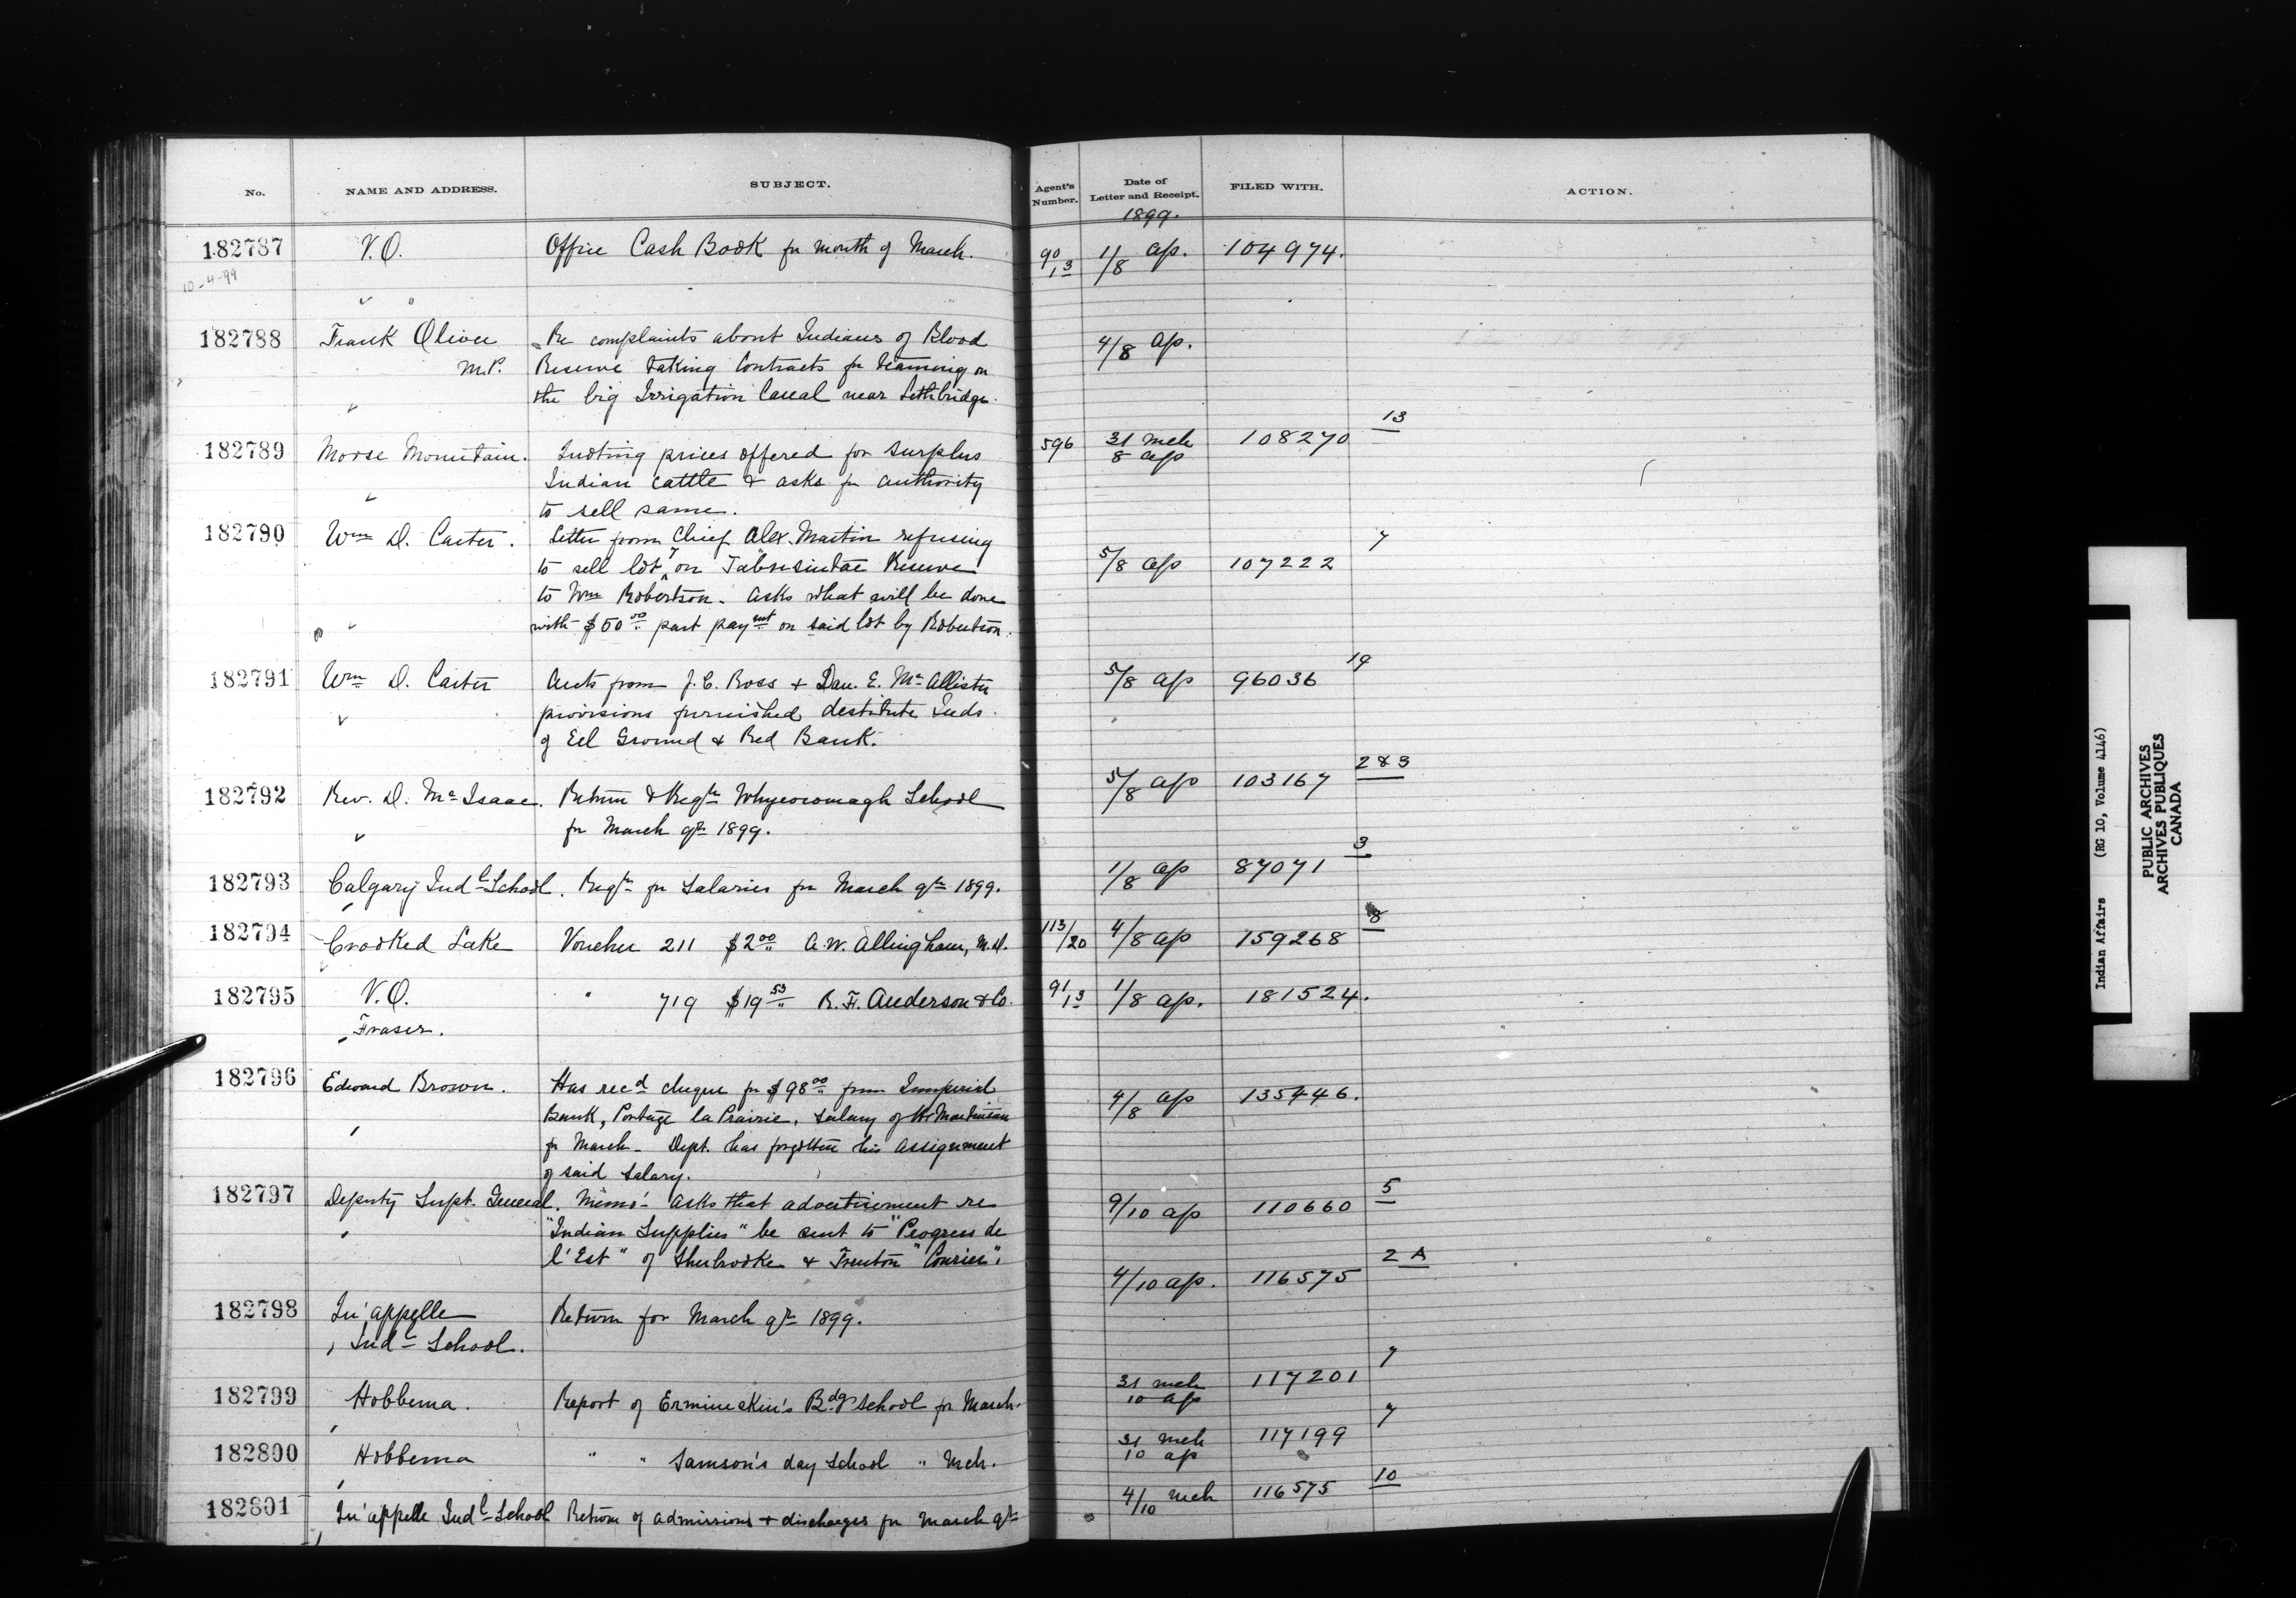 No. NAME AND ADDRESS. SUBJECT. Agent's Number. Date of Letter and Receipt. FILED WITH. ACTION.
1899.
182787 V.O. Office Cash Book for month of March. 90/13 1/8 ap. 104974.
10-4-99
182788 Frank Oliver Re complaints about Indians of Blood 4/8 ap.
M.P. Reserve taking contracts for teaming on
the big Irrigation Canal near Lethbridge.
182789 Moose Mountain. Quoting prices offered for surplus 596 31 mch 108270 13
8 ap
Indian cattle & asks for authority
to sell same.
182790 Wm D. Carter. Letter from Chief Alex. Martin refusing 7
to sell lot 7 on Tabusintac Reserve 5/8 ap 107222
to Wm Robertson. Asks what will be done
with $50 00 part paymt on said lot by Robertson.
182791 Wm D. Carter Accts from J.C. Ross & Dan. E. McAllister 5/8 ap 96036 19
provisions furnished destitute Inds.
of Eel Ground & Red Bank.
182792 Rev. D. McIsaac. Return & Reqtn Whycocomagh School 5/8 ap 103167 2 & 3
for March qr 1899.
182793 Calgary Indl School. Reqtn for Salaries for March qr 1899. 1/8 ap 87071 3
182794 Crooked Lake Voucher 211 $2 00 A.W. Allingham, M.D. 113/20 4/8 ap 159268 8
182795 V.O. " 719 $19 53 R.F. Anderson & Co. 91/13 1/8 ap. 181524.
Fraser.
182796 Edward Brown. Has recd cheque for $98 00 from Imperial 4/8 ap 135446.
Bank, Portage la Prairie, salary of Mr Martineau
for March - Dept. has forgotten his assignment
of said salary.
182797 Deputy Supt. General. Memo - asks that advertisement re 9/10 ap 110660 5
"Indian Supplies" be sent to "Progress de
l'Est" of Sherbrooke & Trenton "Courier".
182798 Qu'appelle Return for March qr 1899. 4/10 ap. 116575 2 A
Indl School.
182799 Hobbema. Report of Ermineskin's Bdg School for March. 31 mch 117201 7
10 ap
182800 Hobbema " " Samson's day School " Mch. 31 mch 117199 7
10 ap
182801 Qu'appelle Indl School Return of admissions & discharges for March qr 4/10 mch 116575 10
Indian Affairs (RG 10, Volume 4146)
PUBLIC ARCHIVES
ARCHIVES PUBLIQUES
CANADA